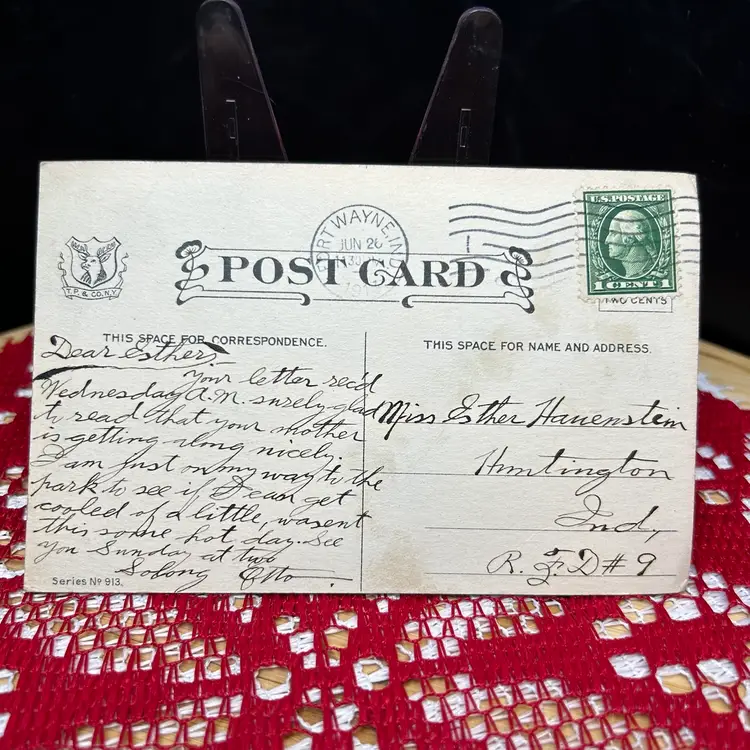 U.S. POSTAGE
1 CENT 1
TWO CENTS
FORT WAYNE, IND.
JUN 26
POST CARD
T. P. & CO. N.Y.
THIS SPACE FOR CORRESPONDENCE.
THIS SPACE FOR NAME AND ADDRESS.
Dear Esther,
Your letter rec'd
Wednesday A.M. surely glad
to read that your mother
is getting along nicely.
I am just on my way to the
park to see if I can get
cooled of a little, wasent
this some hot day. See
you Sunday at two
Solong Otto
Miss Esther Hauenstein
Huntington
Ind,
R. F. D # 9
Series No 913.